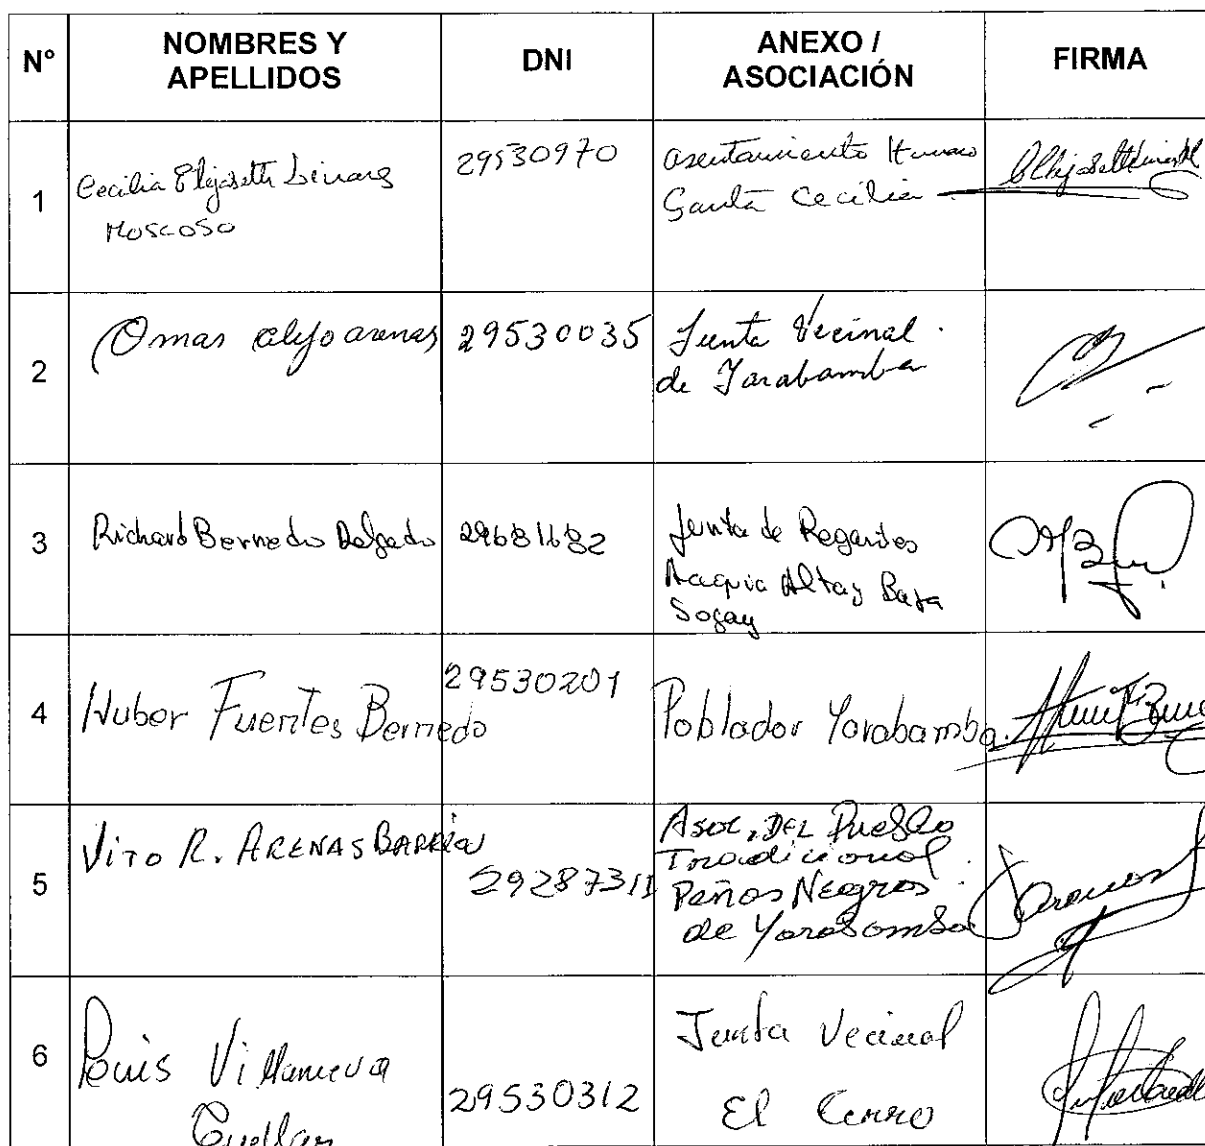 Nº NOMBRES Y APELLIDOS DNI ANEXO / ASOCIACIÓN FIRMA
1 Cecilia Elizabeth Linares 29530970 Asentamiento Humano
Moscoso Santa Cecilia
2 Omar Alejo Arenas 29530035 Junta Vecinal
de Yarabamba
3 Richard Bernedo Delgado Junta de Regantes
Acequia Alta y Baja
Sogay
4 Huber Fuentes Bernedo 29530201 Poblador Yarabamba
5 Vito R. ARENAS BARREDA 29287311 Asoc. DEL Pueblo
Tradicional
Peñas Negras
de Yarabamba
6 Luis Villanueva 29530312 Junta Vecinal
Cuellar El Cerro